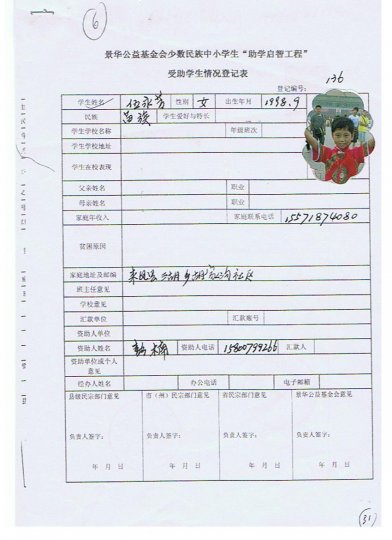 6
景华公益基金会少数民族中小学生“助学启智工程”
受助学生情况登记表
登记编号: 136
学生姓名 伍永芳 性别 女 出生年月 1998.9
民族 苗族 学生爱好与特长
学生学校名称 年级班次
学生学校地址
学生在校表现
父亲姓名 职业
母亲姓名 职业
家庭年收入 家庭联系电话 15571874080
贫困原因
家庭地址及邮编 来凤县 胡 乡 沟社区
班主任意见
学校意见
汇款单位 汇款账号
资助人单位
资助人姓名 资助人电话 15800799266 汇款人
资助单位或个人意见
经办人姓名 办公电话 电子邮箱
县级民宗部门意见 市(州)民宗部门意见 省民宗部门意见 景华公益基金会意见
负责人签字: 负责人签字: 负责人签字: 负责人签字:
年 月 日 年 月 日 年 月 日 年 月 日
31